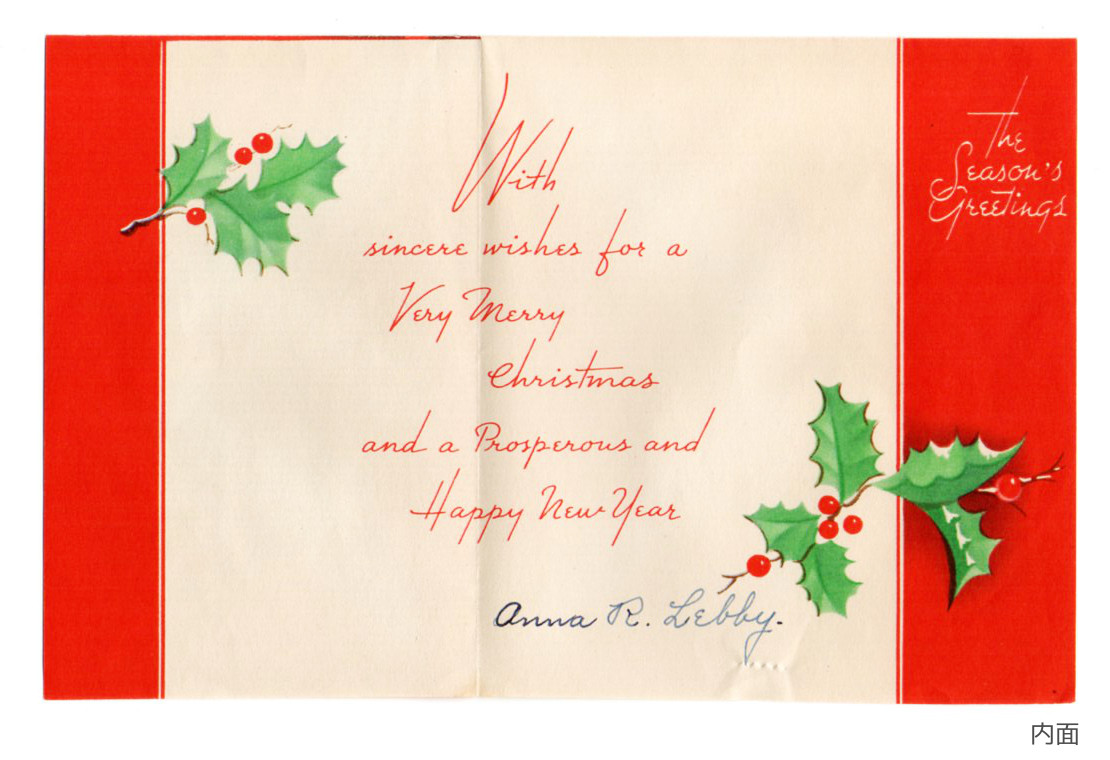 With
sincere wishes for a
Very Merry
Christmas
and a Prosperous and
Happy New Year
Anna R. Lebby.
The
Season's
Greetings
内面